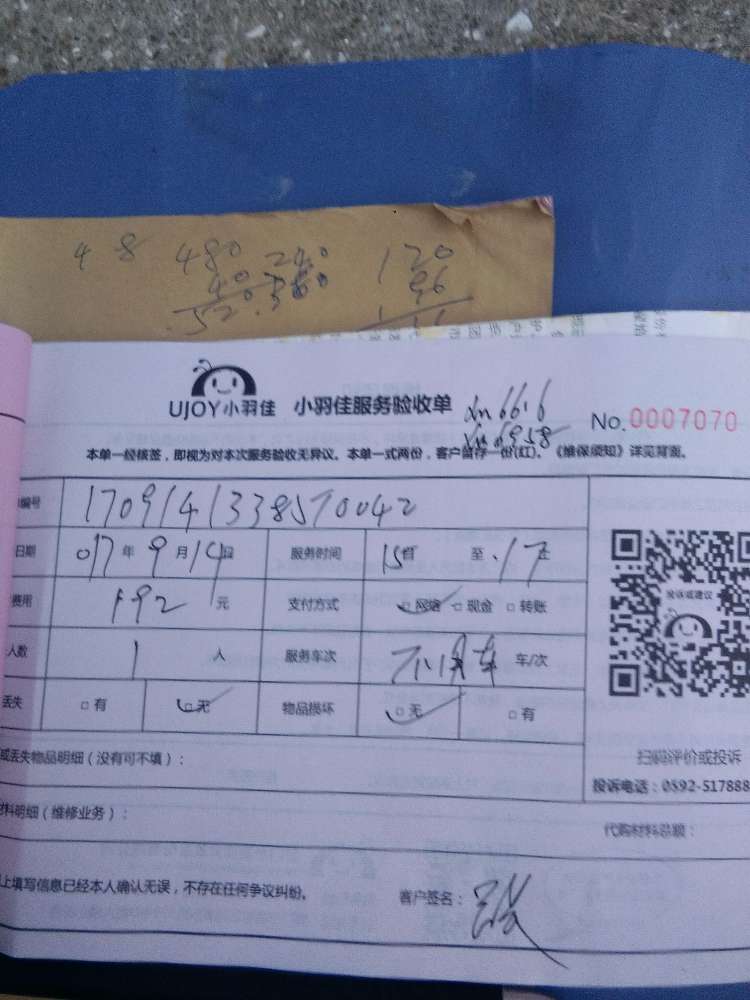 48 480 240 120
40 360 96
520
UJOY小羽佳 小羽佳服务验收单 xm6616 No.0007070
xm6958
本单一经核签，即视为对本次服务验收无异议。本单一式两份，客户留存一份(红)。《维保须知》详见背面。
编号 1709141338570042
日期 017年9月14日 服务时间 15 至 17
费用 192元 支付方式 □网络 □现金 □转账
投诉或建议
人数 1人 服务车次 不用车 车/次
丢失 □有 □无 物品损坏 □无 □有
或丢失物品明细（没有可不填）： 扫码评价或投诉
投诉电话：0592-517888
料明细（维修业务）： 代购材料总额：
上填写信息已经本人确认无误，不存在任何争议纠纷。 客户签名：